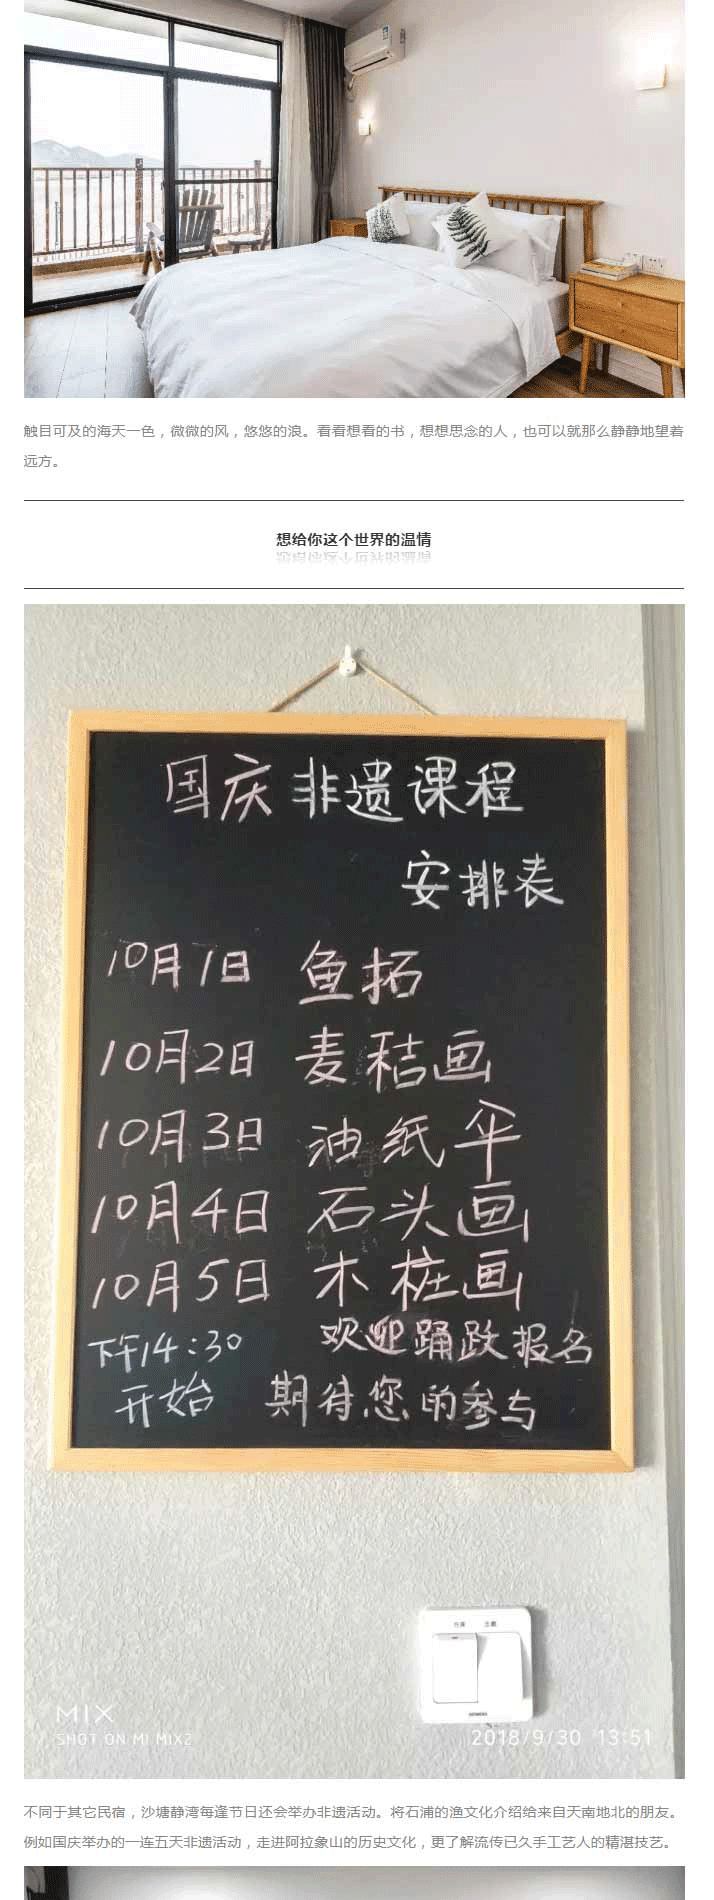 触目可及的海天一色，微微的风，悠悠的浪。看看想看的书，想想思念的人，也可以就那么静静地望着
远方。
想给你这个世界的温情
国庆非遗课程
安排表
10月1日 鱼拓
10月2日 麦秸画
10月3日 油纸伞
10月4日 石头画
10月5日 木桩画
下午14:30 欢迎踊跃报名
开始 期待您的参与
MIX
SHOT ON MI MIX2
2018/9/30 13:51
不同于其它民宿，沙塘静湾每逢节日还会举办非遗活动。将石浦的渔文化介绍给来自天南地北的朋友。
例如国庆举办的一连五天非遗活动，走进阿拉象山的历史文化，更了解流传已久手工艺人的精湛技艺。